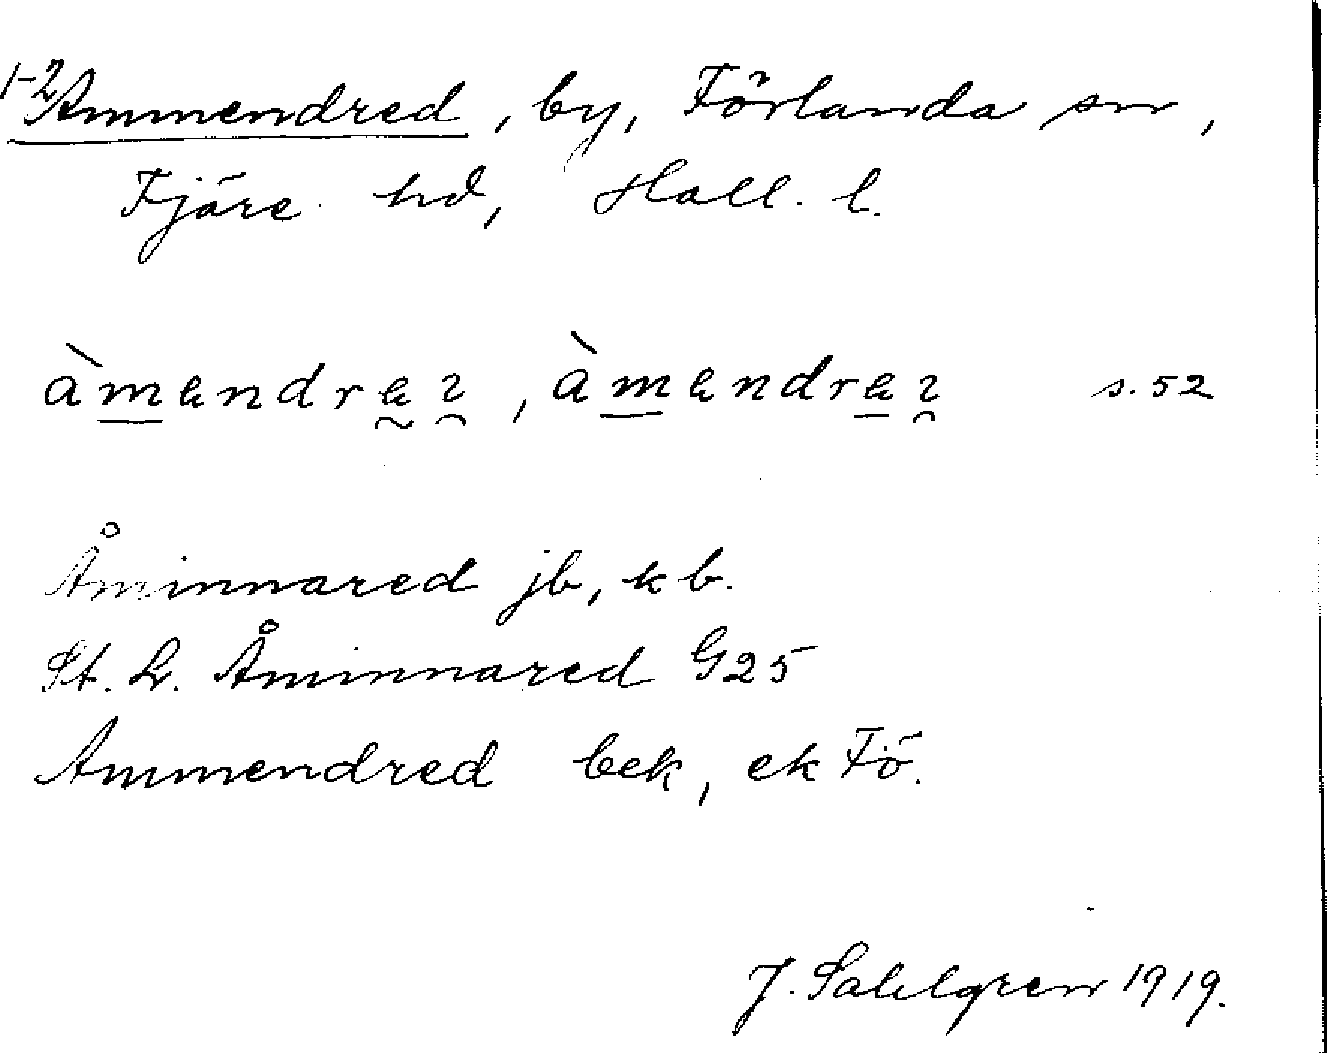 1-2 Ammendred, by, Förlanda sn,
Fjäre hd, Hall. l.
àmendrez, àmendrez s. 52
Åminnared jb, kb.
St. L. Åminnared G25
Ammendred bek, ek Fö.
J. Sahlgren 1919.